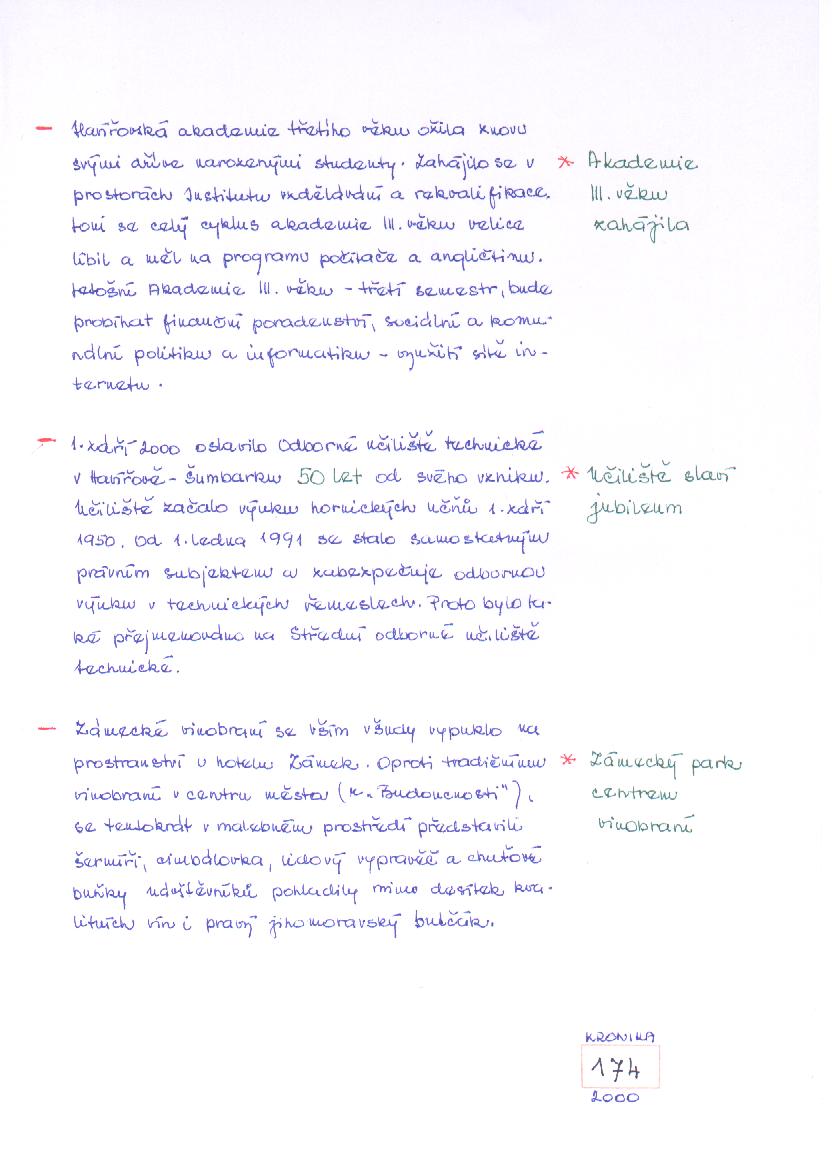 - Havířovská akademie třetího věku ožila znovu
svými dříve narozenými studenty. Zahájilo se v
prostorách Institutu vzdělávání a rekvalifikace.
Loni se celý cyklus akademie III. věku velice
líbil a měl na programu počítače a angličtinu.
Letošní Akademie III. věku - třetí semestr, bude
probíhat finanční poradenství, sociální a komu-
nální politiku a informatiku - využití sítě in-
ternetu.
* Akademie
III. věku
zahájila
- 1. září 2000 oslavilo Odborné učiliště technické
v Havířově - Šumbarku 50 let od svého vzniku.
Učiliště začalo výuku hornických učňů 1. září
1950. Od 1. ledna 1991 se stalo samostatným
právním subjektem a zabezpečuje odbornou
výuku v technických řemeslech. Proto bylo ta-
ké přejmenováno na Střední odborné učiliště
technické.
* Učiliště slaví
jubileum
- Zámecké vinobraní se vším všudy vypuklo na
prostranství u hotelu Zámek. Oproti tradičnímu
vinobraní v centru města (u „Budoucnosti"),
se tentokrát v malebném prostředí představili
šermíři, cimbálovka, lidový vypravěč a chuťové
buňky návštěvníků pohladily mimo desítek kva-
litních vín i pravý jihomoravský burčák.
* Zámecký park
centrem
vinobraní
KRONIKA
174
2000